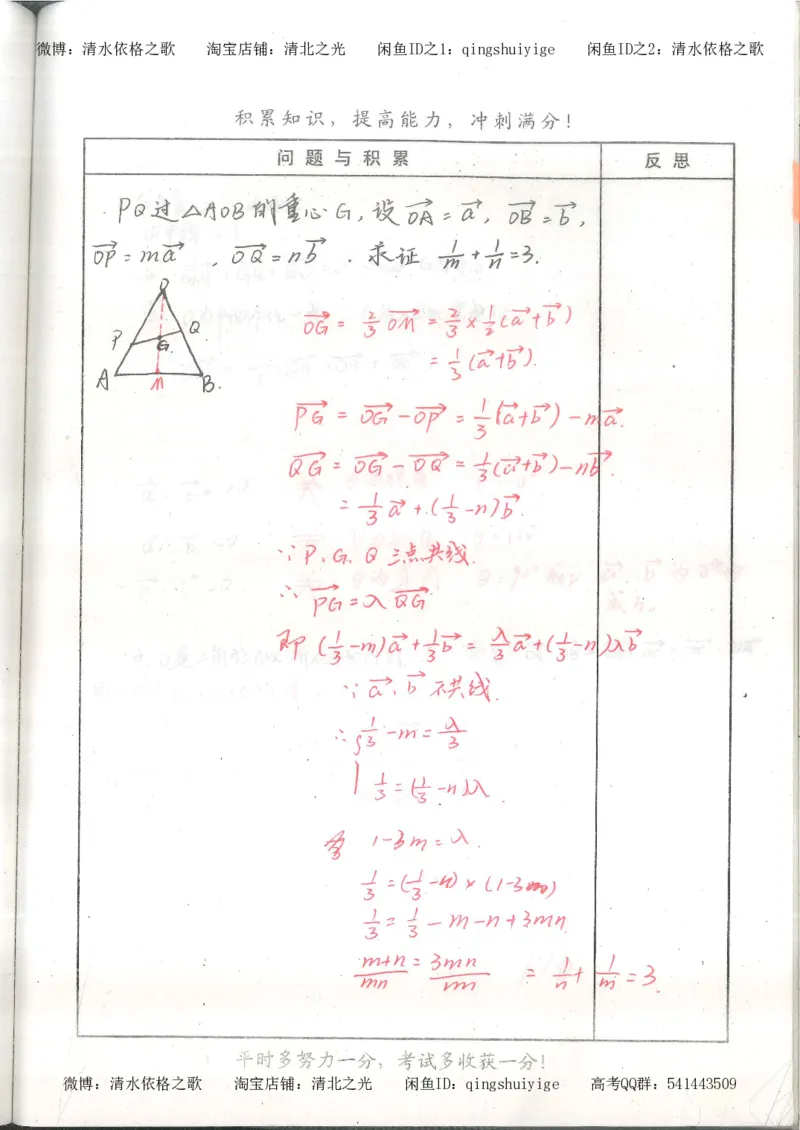 微博：清水依格之歌 淘宝店铺：清北之光 闲鱼ID之1：qingshuiyige 闲鱼ID之2：清水依格之歌
积累知识，提高能力，冲刺满分！
问题与积累 反思
PQ过△AOB的重心G，设\overrightarrow{OA}=\vec{a}，\overrightarrow{OB}=\vec{b}，
\overrightarrow{OP}=m\vec{a}，\overrightarrow{OQ}=n\vec{b}．求证 \frac{1}{m}+\frac{1}{n}=3.
O
P Q
G.
A M B.
\overrightarrow{OG}=\frac{2}{3}\overrightarrow{OM}=\frac{2}{3}×\frac{1}{2}(\vec{a}+\vec{b})
=\frac{1}{3}(\vec{a}+\vec{b}).
\overrightarrow{PG}=\overrightarrow{OG}-\overrightarrow{OP}=\frac{1}{3}(\vec{a}+\vec{b})-m\vec{a}.
\overrightarrow{QG}=\overrightarrow{OG}-\overrightarrow{OQ}=\frac{1}{3}(\vec{a}+\vec{b})-n\vec{b}.
=\frac{1}{3}\vec{a}+(\frac{1}{3}-n)\vec{b}.
∵P、G、Q 三点共线.
∴\overrightarrow{PG}=λ\overrightarrow{QG}
即(\frac{1}{3}-m)\vec{a}+\frac{1}{3}\vec{b}=\frac{λ}{3}\vec{a}+(\frac{1}{3}-n)λ\vec{b}
∵\vec{a}、\vec{b}不共线.
∴{\frac{1}{3}-m=\frac{λ}{3}
\frac{1}{3}=(\frac{1}{3}-n)λ.
1-3m=λ.
\frac{1}{3}=(\frac{1}{3}-n)×(1-3m)
\frac{1}{3}=\frac{1}{3}-m-n+3mn
\frac{m+n}{mn}=\frac{3mn}{mn} =\frac{1}{n}+\frac{1}{m}=3.
平时多努力一分，考试多收获一分！
微博：清水依格之歌 淘宝店铺：清北之光 闲鱼ID：qingshuiyige 高考QQ群：541443509